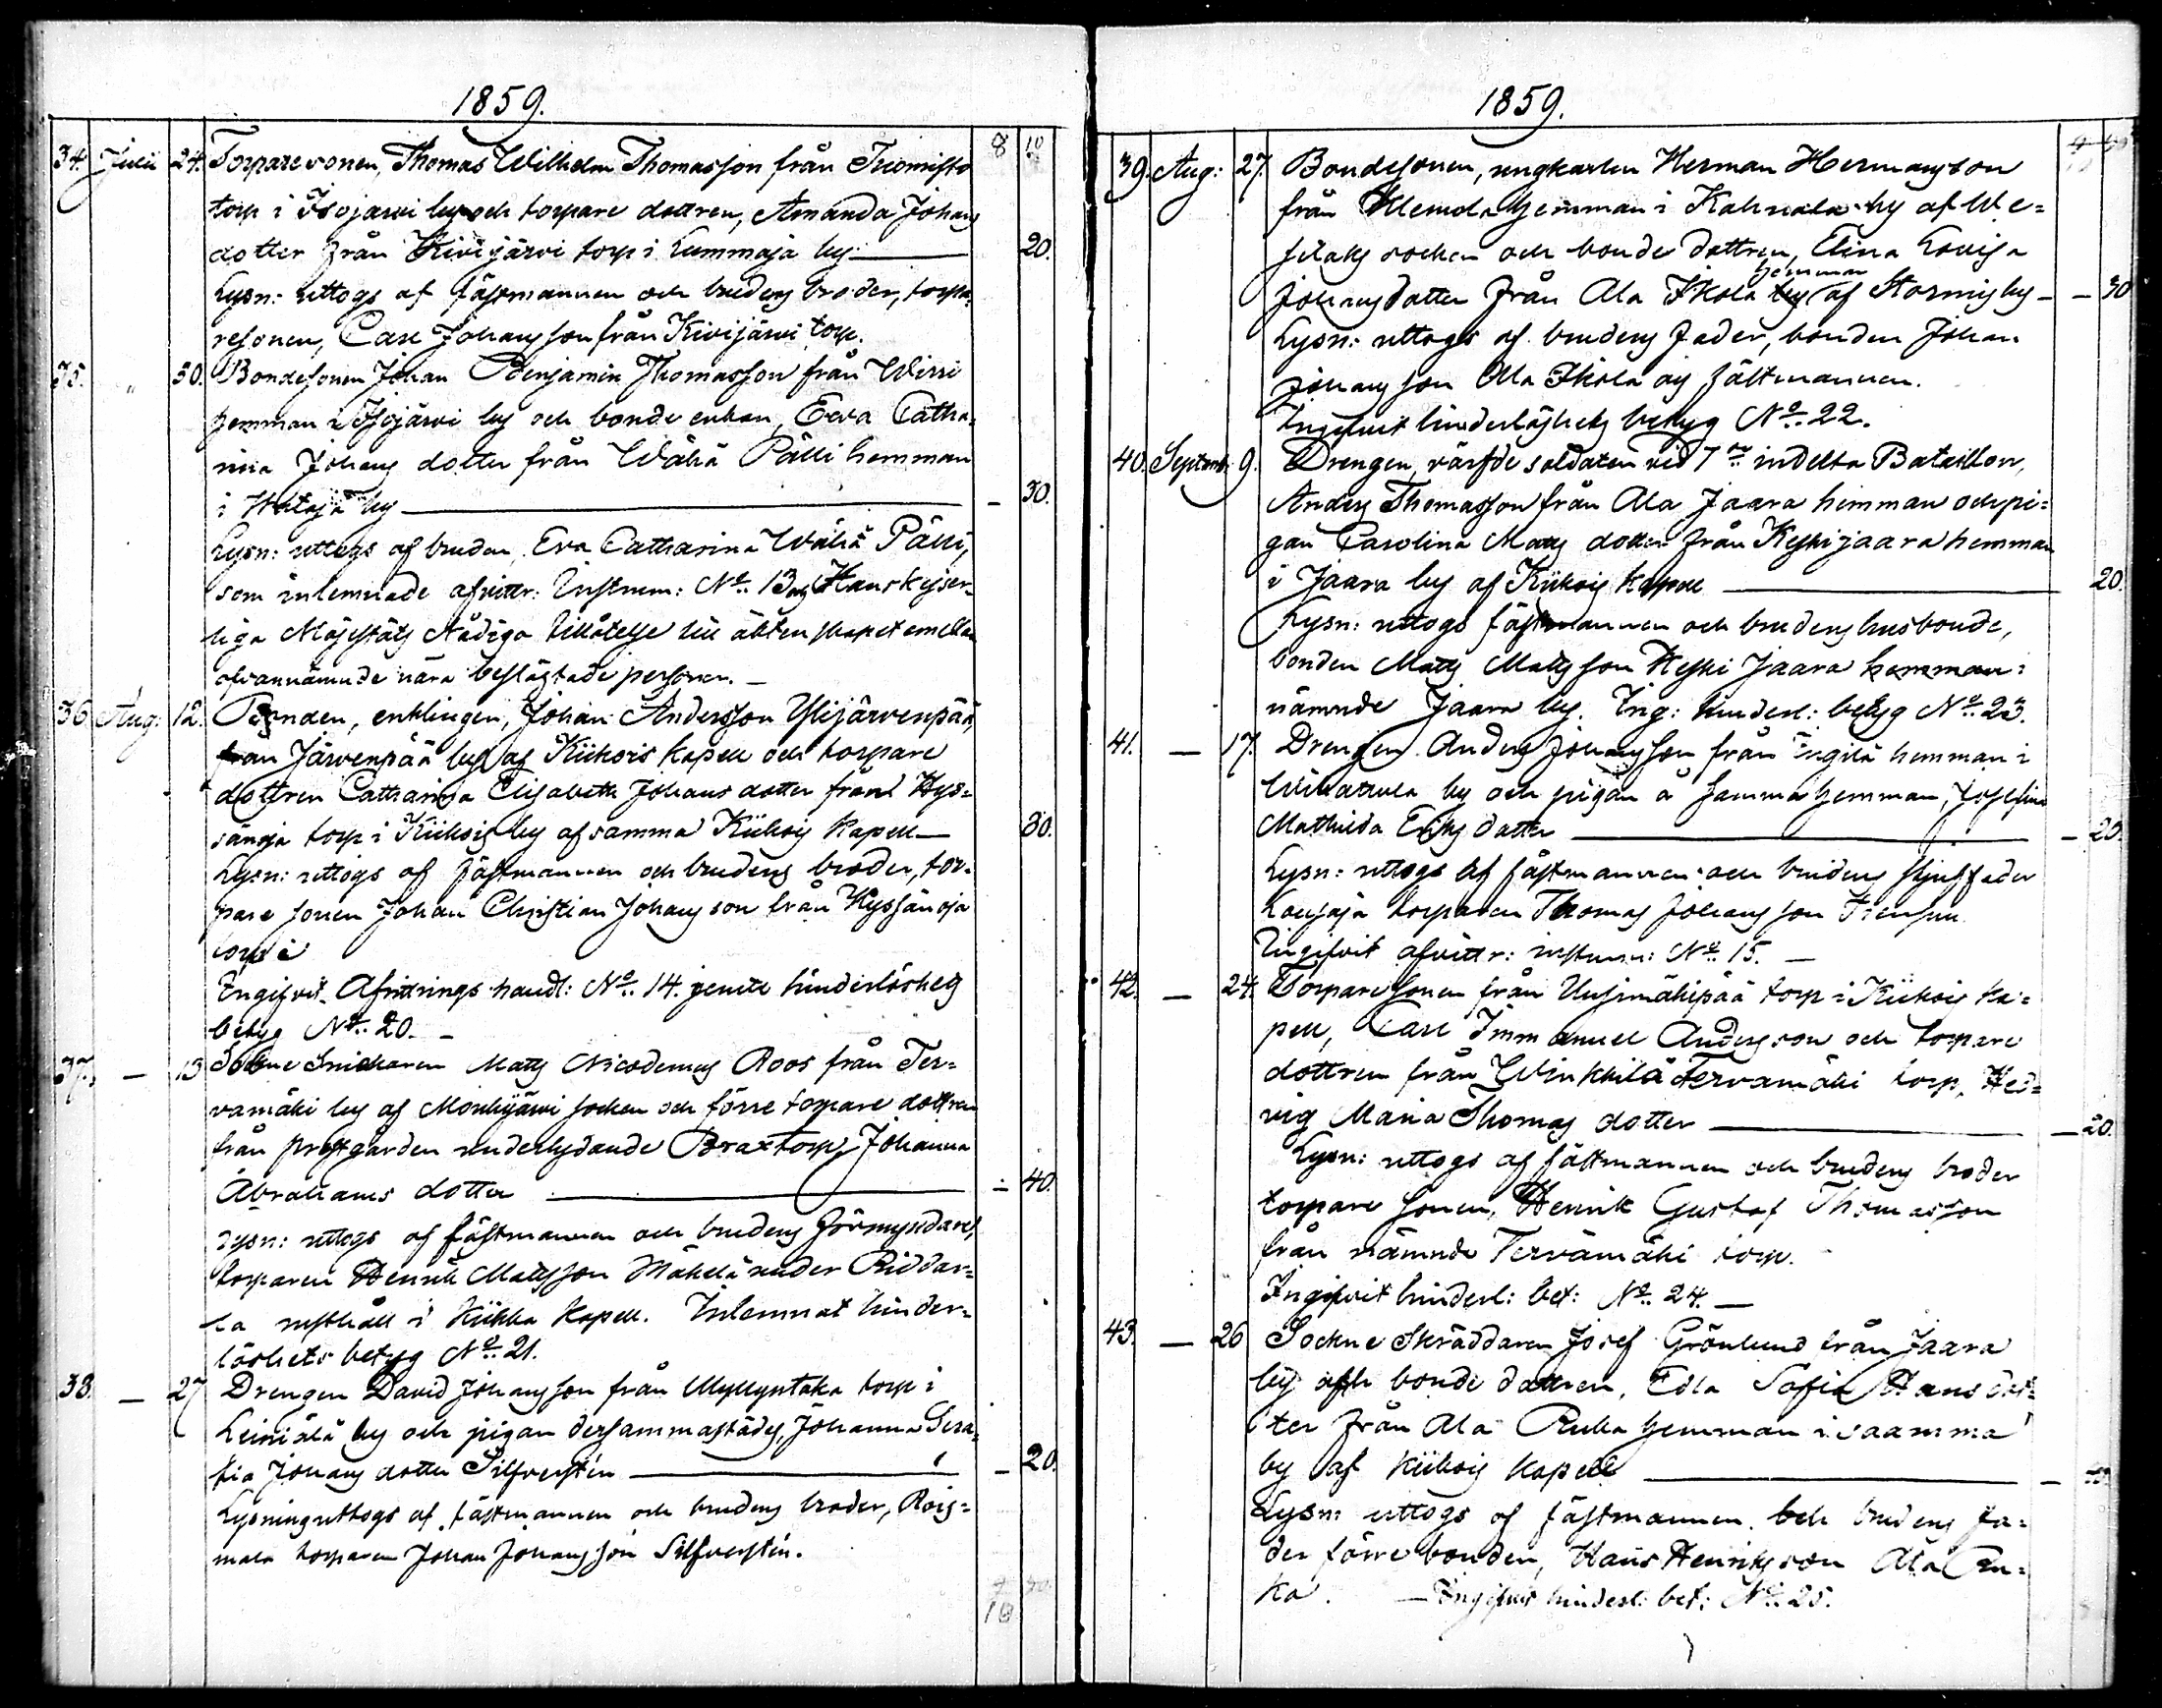 1859.
8 10
34. Julii 24. Torparesonen, Thomas Wilhelm Thomasson från Tuomisto
torp i Isojärvi by och torpare dottren, Amanda Johans
dotter från Kivijärvi torp i Lummaja by — 20.
Lysn: uttogs af fästmannen och brudens broder, torpa-
resonen, Carl Johansson från Kivijärvi torp.
35. " 30. Bondesonen Johan Benjamin Thomasson från Wirri
hemman i Isojärvi by och bonde enkan, Eva Catha-
rina Johans dotter från Wähä Pälli hemman
i by — 30.
Lysn: uttogs af bruden Eva Catharina Wähä Pälli,
som inlemnade afvittr: Instrum: No. 13 och Hans Kejser-
liga Majestäts Nådiga tillåtelse till äktenskapet emellan
ofvannämnde nära beslägtade personer. —
36. Aug: 12. Bonden, enklingen, Johan Andersson Ylijärvenpää,
från Järvenpää by af Kiikois Kapell och torpare
dottren Catharina Elisabeth Johans dotter från Hys-
sänoja torp i Kiikois by af samma Kiikois Kapell — 30.
Lysn: uttogs af fästmannen och brudens broder, tor-
pare sonen Johan Christian Johansson från Hyssänoja
torp i
Ingifvit Afvittrings handl: No. 14. jemte hinderlöshets
betyg No. 20. —
37. — 13. Sockne Snickaren Matts Nicodemus Roos från Ter-
vamäki by af Mouhijärvi socken och förre torpare dottren
från prestgården underlydande Brax torp, Johanna
Abrahams dotter — 40.
Lysn: uttogs af fästmannen och brudens förmyndare,
torparen Henrik Mattsson Mäkelä under Riddar-
la rusthåll i Kiikka Kapell. Inlemnat hinder-
löshets betyg No. 21.
38. — 27 Drengen David Johansson från Myllyntaka torp i
Leiniälä by och pigan dersammastädes, Johanna Sera-
fia Johans dotter Silfverstén — 20.
Lysning uttogs af fästmannen och brudens broder, Rois-
mala torparen Johan Johansson Silfverstén.
1859.
39. Aug: 27. Bondesonen, ungkarlen Herman Hermansson
från hemman i by af We-
silaks socken och bonde dottren, Elina Lovisa
hemman
Johansdotter från Ala Ikola by af Stormis by — 30
Lysn: uttogs af brudens fader, bonden Johan
Johansson Ala Ikola och fästmannen.
Ingifvit hinderlöshets betyg No. 22.
40. Septemb: 9. Drengen, värfde soldaten vid 7de indelta Bataillon,
Anders Thomasson från Ala Jaara hemman och pi-
gan Carolina Matts dotter från Keskijaara hemman
i Jaara by af Kiikois Kapell — 20.
Lysn: uttogs fästmannen och brudens husbonde,
bonden Matts Mattsson Keski Jaara hemman i
nämnde Jaara by. Ing: hinderl: betyg No. 23.
41. — 17. Drengen Anders Johansson från hemman i
by och pigan å samma hemman, Josefina
Mathilda Eriks dotter — 20.
Lysn: uttogs af fästmannen och brudens stjuffader
torparen Thomas Johansson
Ingifvit afvittr: instrum: No. 15. —
42. — 24. Torpare Sonen från Uusimäkipää torp i Kiikois ka-
pell, Carl Immanuel Andersson och torpare
dottren från Winkkilä Tervamäki torp, Hed-
vig Maria Thomas dotter — 20.
Lysn: uttogs af fästmannen och brudens broder
torpare Sonen, Henrik Gustaf Thomasson
från nämnde Tervämäki torp.
Ingifvit hinderl: bet: No. 24. —
43. — 26 Sockne Skräddaren Josef Grönlund från Jaara
by och bonde dottren, Edla Sofia Hans dot-
ter från Ala Ruka hemman i saamma
by af Kiikois Kapell —
Lysn: uttogs af fästmannen och brudens fa-
der förre bonden, Hans Henriksson Ala Ru-
ka. — Ingifvit hinderl: bet: No. 25.